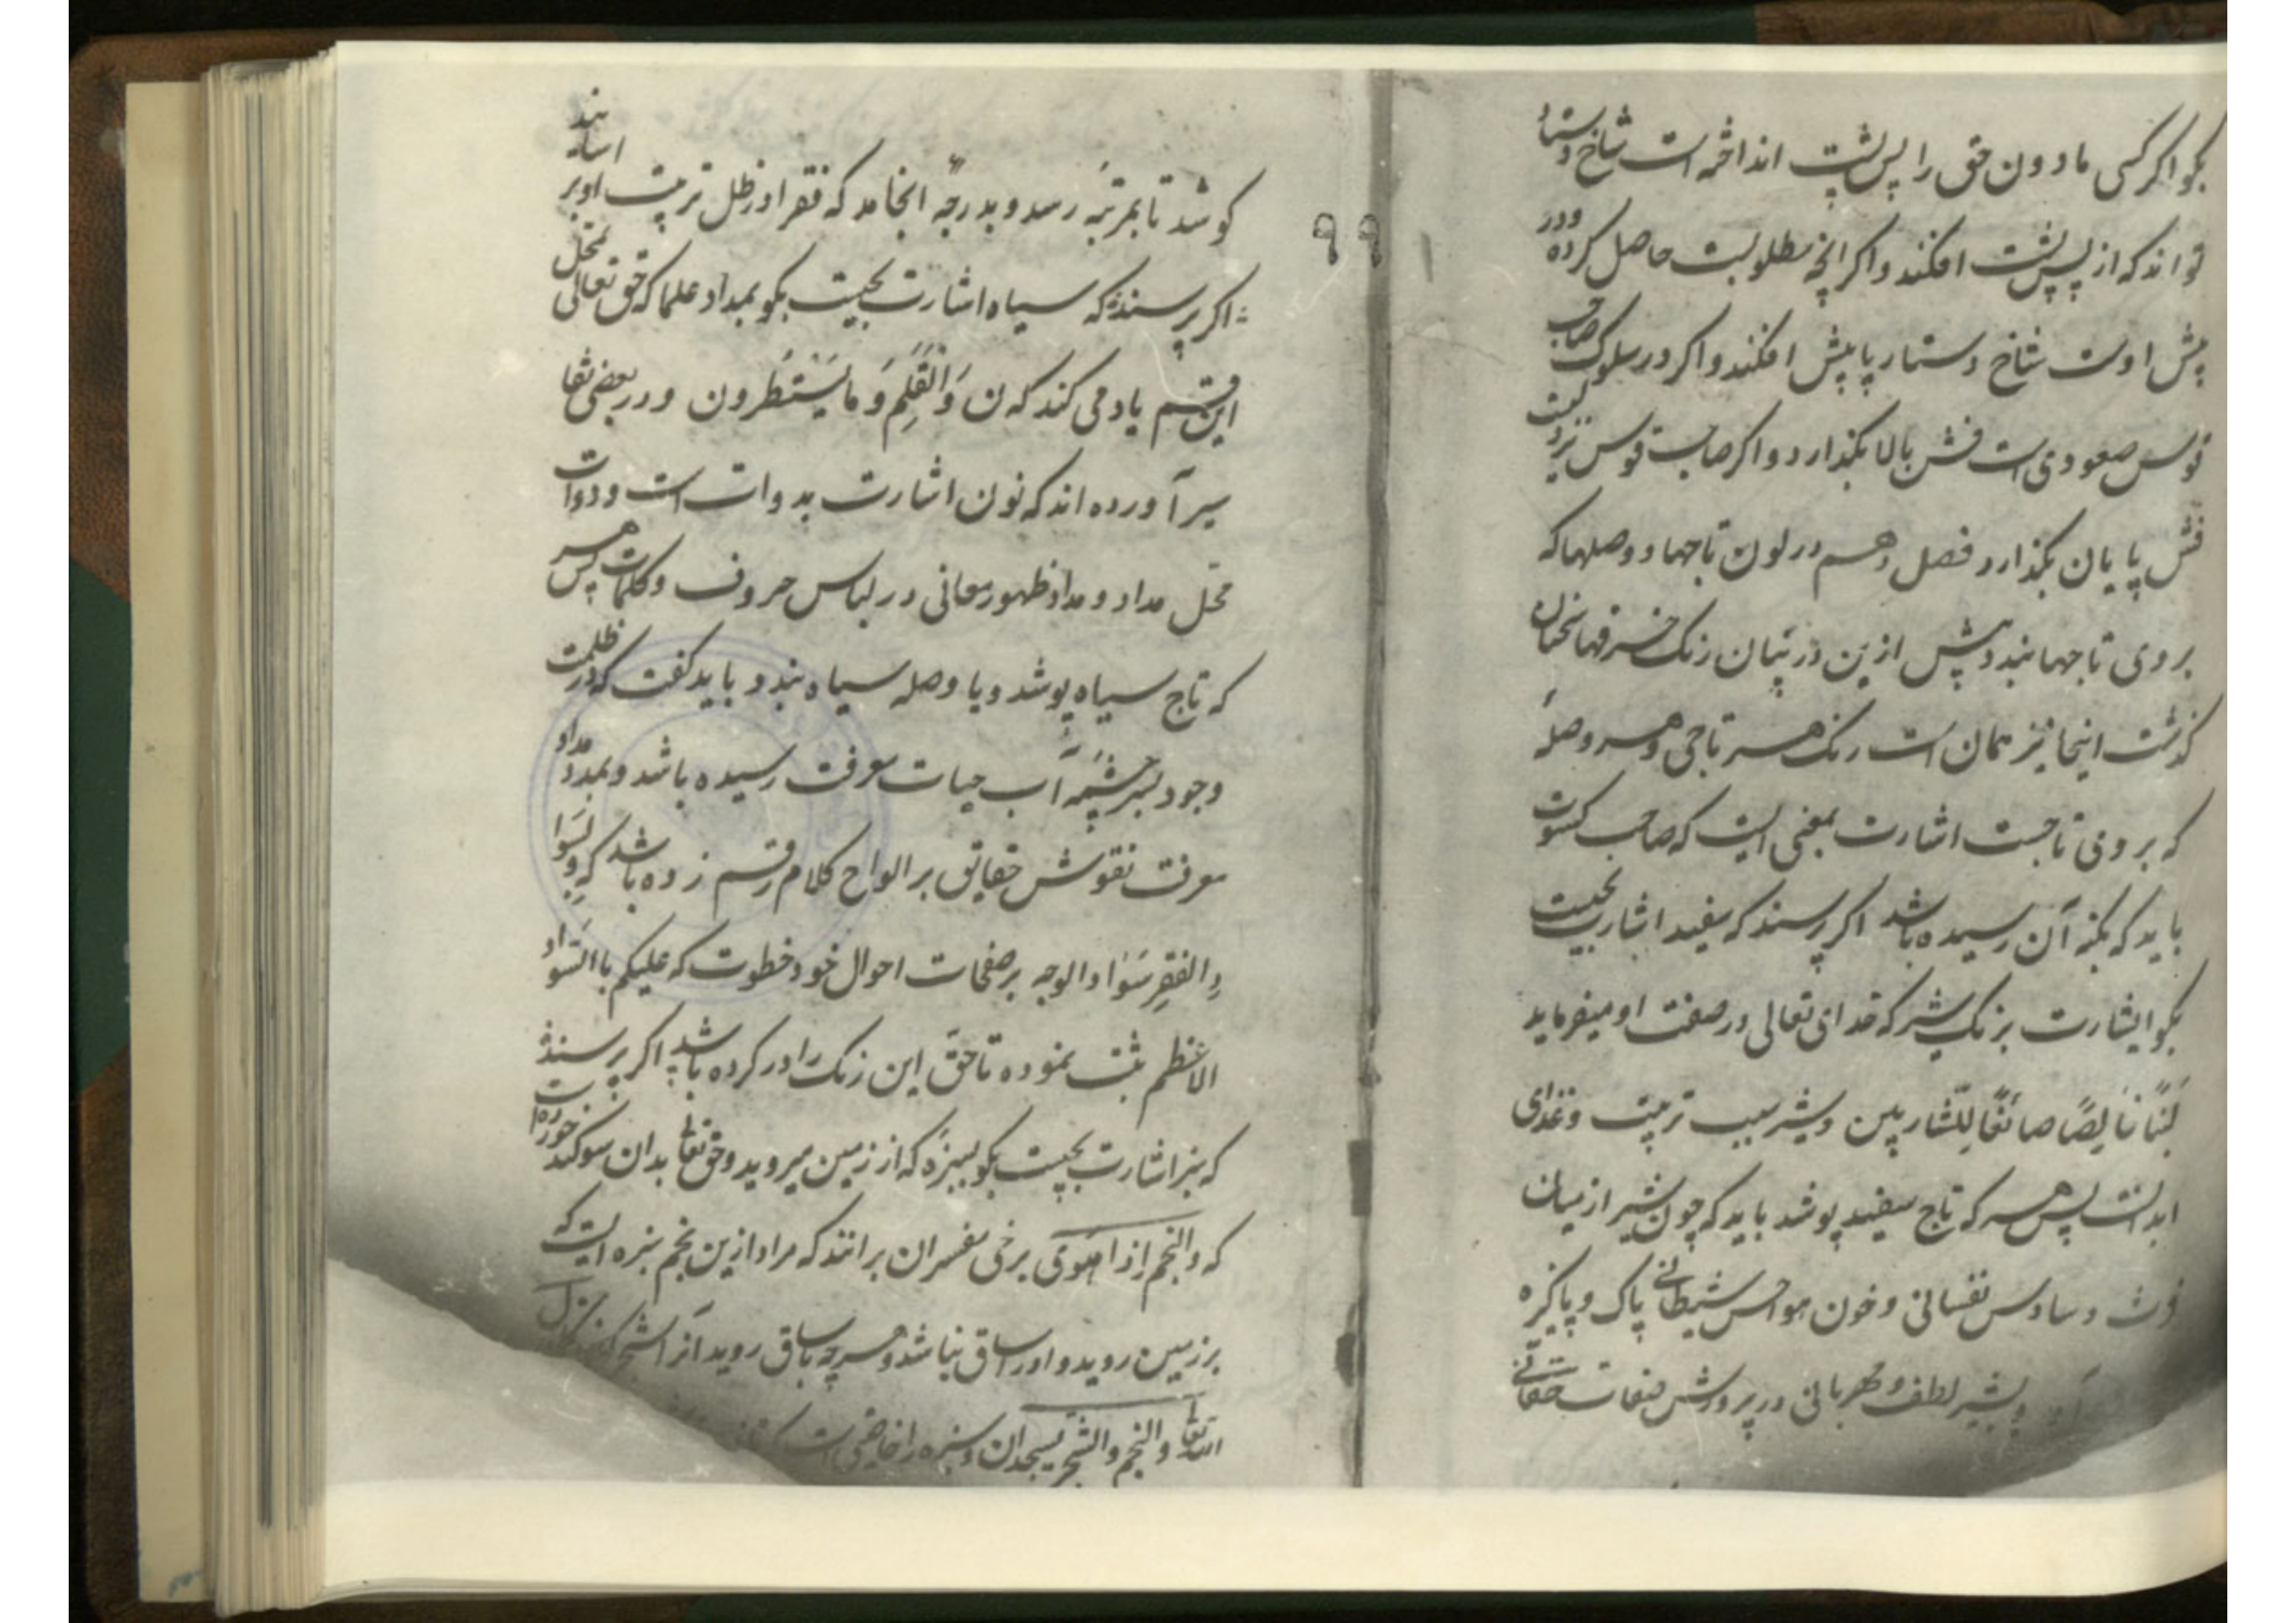 بکو اکر کسی مادون حق را پس پشت انداخته است شاخ دستار
تواند که از پس پشت افکند و اکر انچه مطلوبست حاصل کرده و در
پیش اوست شاخ دستار پا پیش افکند و اکر در سلوک صاحب
قوس صعودی است فش بالا بکذارد و اکر صاحب قوس نزولیست
فش پایان بکذارد فصل دهم در لون تاجها و وصلها که
بروی تاجها بندد پیش ازین در بیان رنک خرقها سخنان
کذشت اینجا نیز همان است رنک هر تاجی و هر وصلهٔ
که بروی تاجست اشارت بمعنی ایست که صاحب کسوت
باید که بکنه آن رسیده باشد اکر پرسند که سفید اشارت بچیست
بکو اشارت برنک شیر که خدای تعالی در صفت او میفرماید
لَبَنًا خَالِصًا صائغًا لِلشّاربین و شیر سبب تربیت و غذای
ابدانست پس هر که تاج سفید پوشد باید که چون شیر از میان
فرث وساوس نفسانی و خون هواجس شیطانی پاک و پاکیزه
و بشیر لطف و مهربانی در پرورش صفات حقانی
۹۹
کوشد تا بمرتبهٔ رسد و بدرجهٔ انجامد که فقرا در ظل تربیت او بر اسایند
اکر پرسند که سیاه اشارت بچیست بکو بمداد علما که حق تعالی بمحل
این قسم یاد می کند که ن وَالْقَلَمِ وَمَا یَسْتَطُرون و در بعضی تفا
سیر آورده اند که نون اشارت بدواتست و دوات
محل مداد و مداد ظهور معانی در لباس حروف و کلمات پس هر
که تاج سیاه پوشد و یا وصله سیاه بندد باید کفت که در ظلمت
وجود بسرچشمهٔ آب حیات معرفت رسیده باشد و بمدد مداد
معرفت نقوش حقایق بر الواح کلام رقم زده باشد که و لسوا
دِ الفقر سَوَاد الوجه بر صفحات احوال خود خطوت که علیکم باالسّواد
الاعظم ثبت نموده تا حق این رنک را در کرده باشد اکر پرسند
که سبز اشارت بچیست بکو بسبزهٔ که از زمین میروید و حق تعالی بدان سوکند خورده است
که والنجم اذا هوی برخی مفسران برانند که مراد ازین نجم سبزه ایست که
بر زمین روید و او را ساق نباشد و هرچه باساق روید آنرا شجر
الله تعالی والنجم والشجر یسجدان و سبزه را خاصیتی است